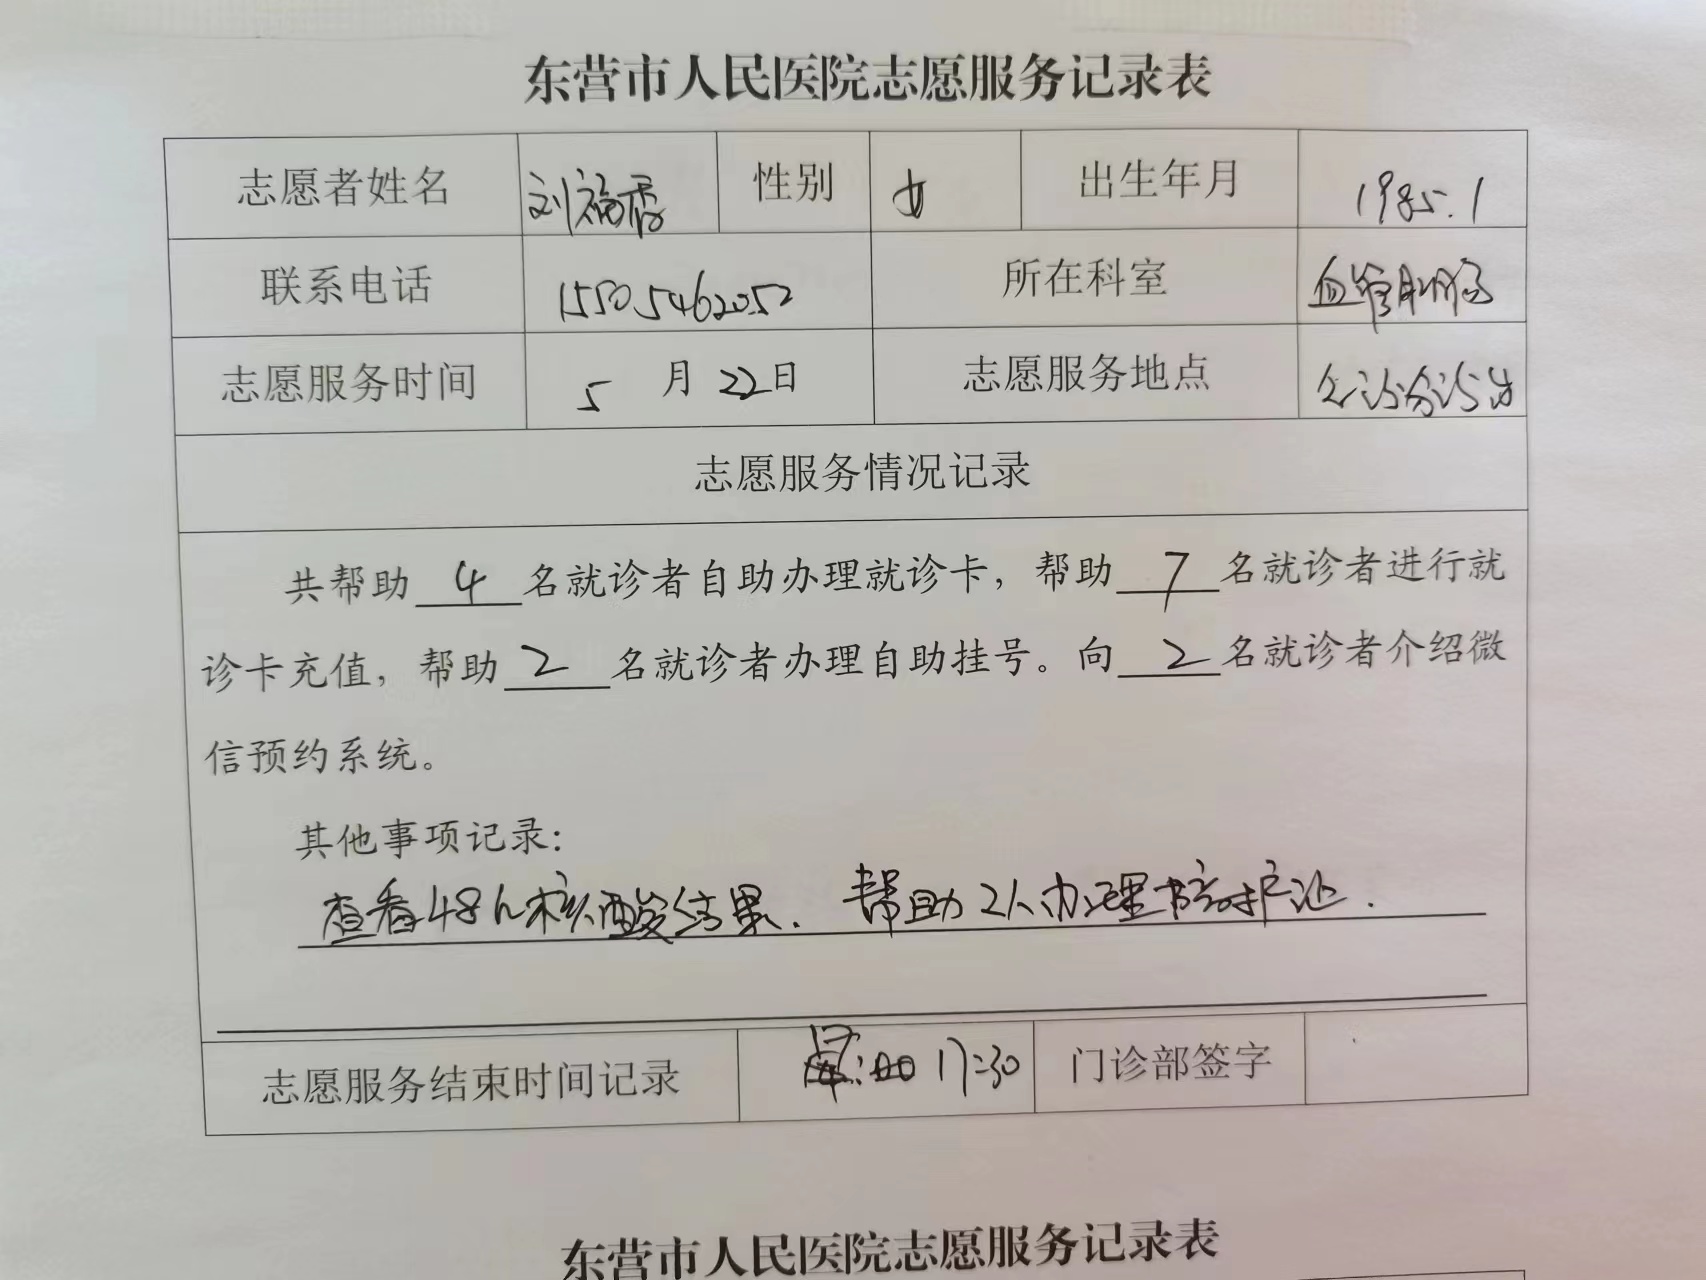 东营市人民医院志愿服务记录表
志愿者姓名 刘福香 性别 女 出生年月 1985.1
联系电话 15505462052 所在科室 血管
志愿服务时间 5 月 22 日 志愿服务地点 分诊台
志愿服务情况记录
共帮助 4 名就诊者自助办理就诊卡，帮助 7 名就诊者进行就
诊卡充值，帮助 2 名就诊者办理自助挂号。向 2 名就诊者介绍微
信预约系统。
其他事项记录：
查看48h核酸结果. 帮助2人办理陪护证.
志愿服务结束时间记录 17:30 门诊部签字
东营市人民医院志愿服务记录表